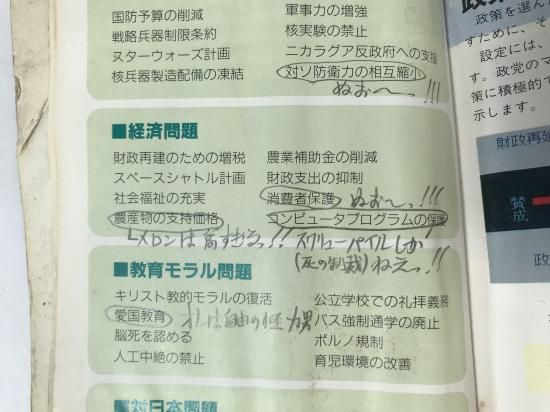 国防予算の削減 軍事力の増強
戦略兵器制限条約 核実験の禁止
スターウォーズ計画 ニカラグア反政府への支援
核兵器製造配備の凍結 対ソ防衛力の相互縮小
ぬぉ〜っ!!!
■経済問題
財政再建のための増税 農業補助金の削減
スペースシャトル計画 財政支出の抑制
社会福祉の充実 消費者保護 ぬぉ〜っ!!!
農産物の支持価格 コンピュータプログラムの保護
メロンは高すぎるっ!! スクリューパイルしか
(死の制裁)ねえっ!!
■教育モラル問題
キリスト教的モラルの復活 公立学校での礼拝義務
愛国教育 オレは自由の 男 バス強制通学の廃止
脳死を認める ポルノ規制
人工中絶の禁止 育児環境の改善
■対日本問題
政策を選ん
めに、そ
設定には、
す。政党のマ
策に積極的で
示します。
財政再建
賛成